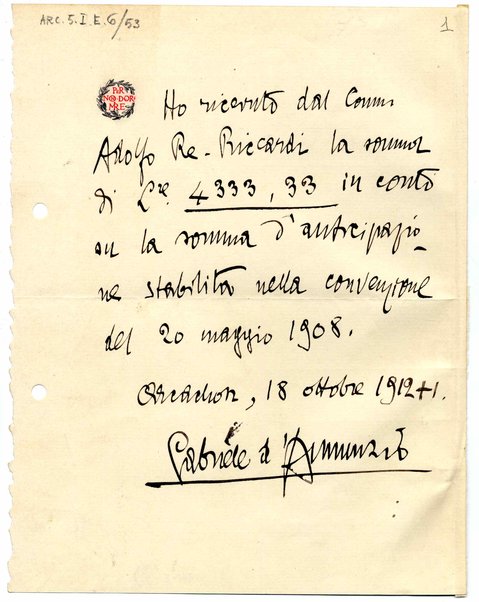 ARC. 5. I. E. 6/53
1
PER
NON DOR
MIRE
Ho ricevuto dal Comm.
Adolfo Re-Riccardi la somma
di L.re 4333,33 in conto
su la somma d'anticipazio_
ne stabilita nella convenzione
del 20 maggio 1908.
Arcachon, 18 ottobre 1912+1.
Gabriele d'Annunzio